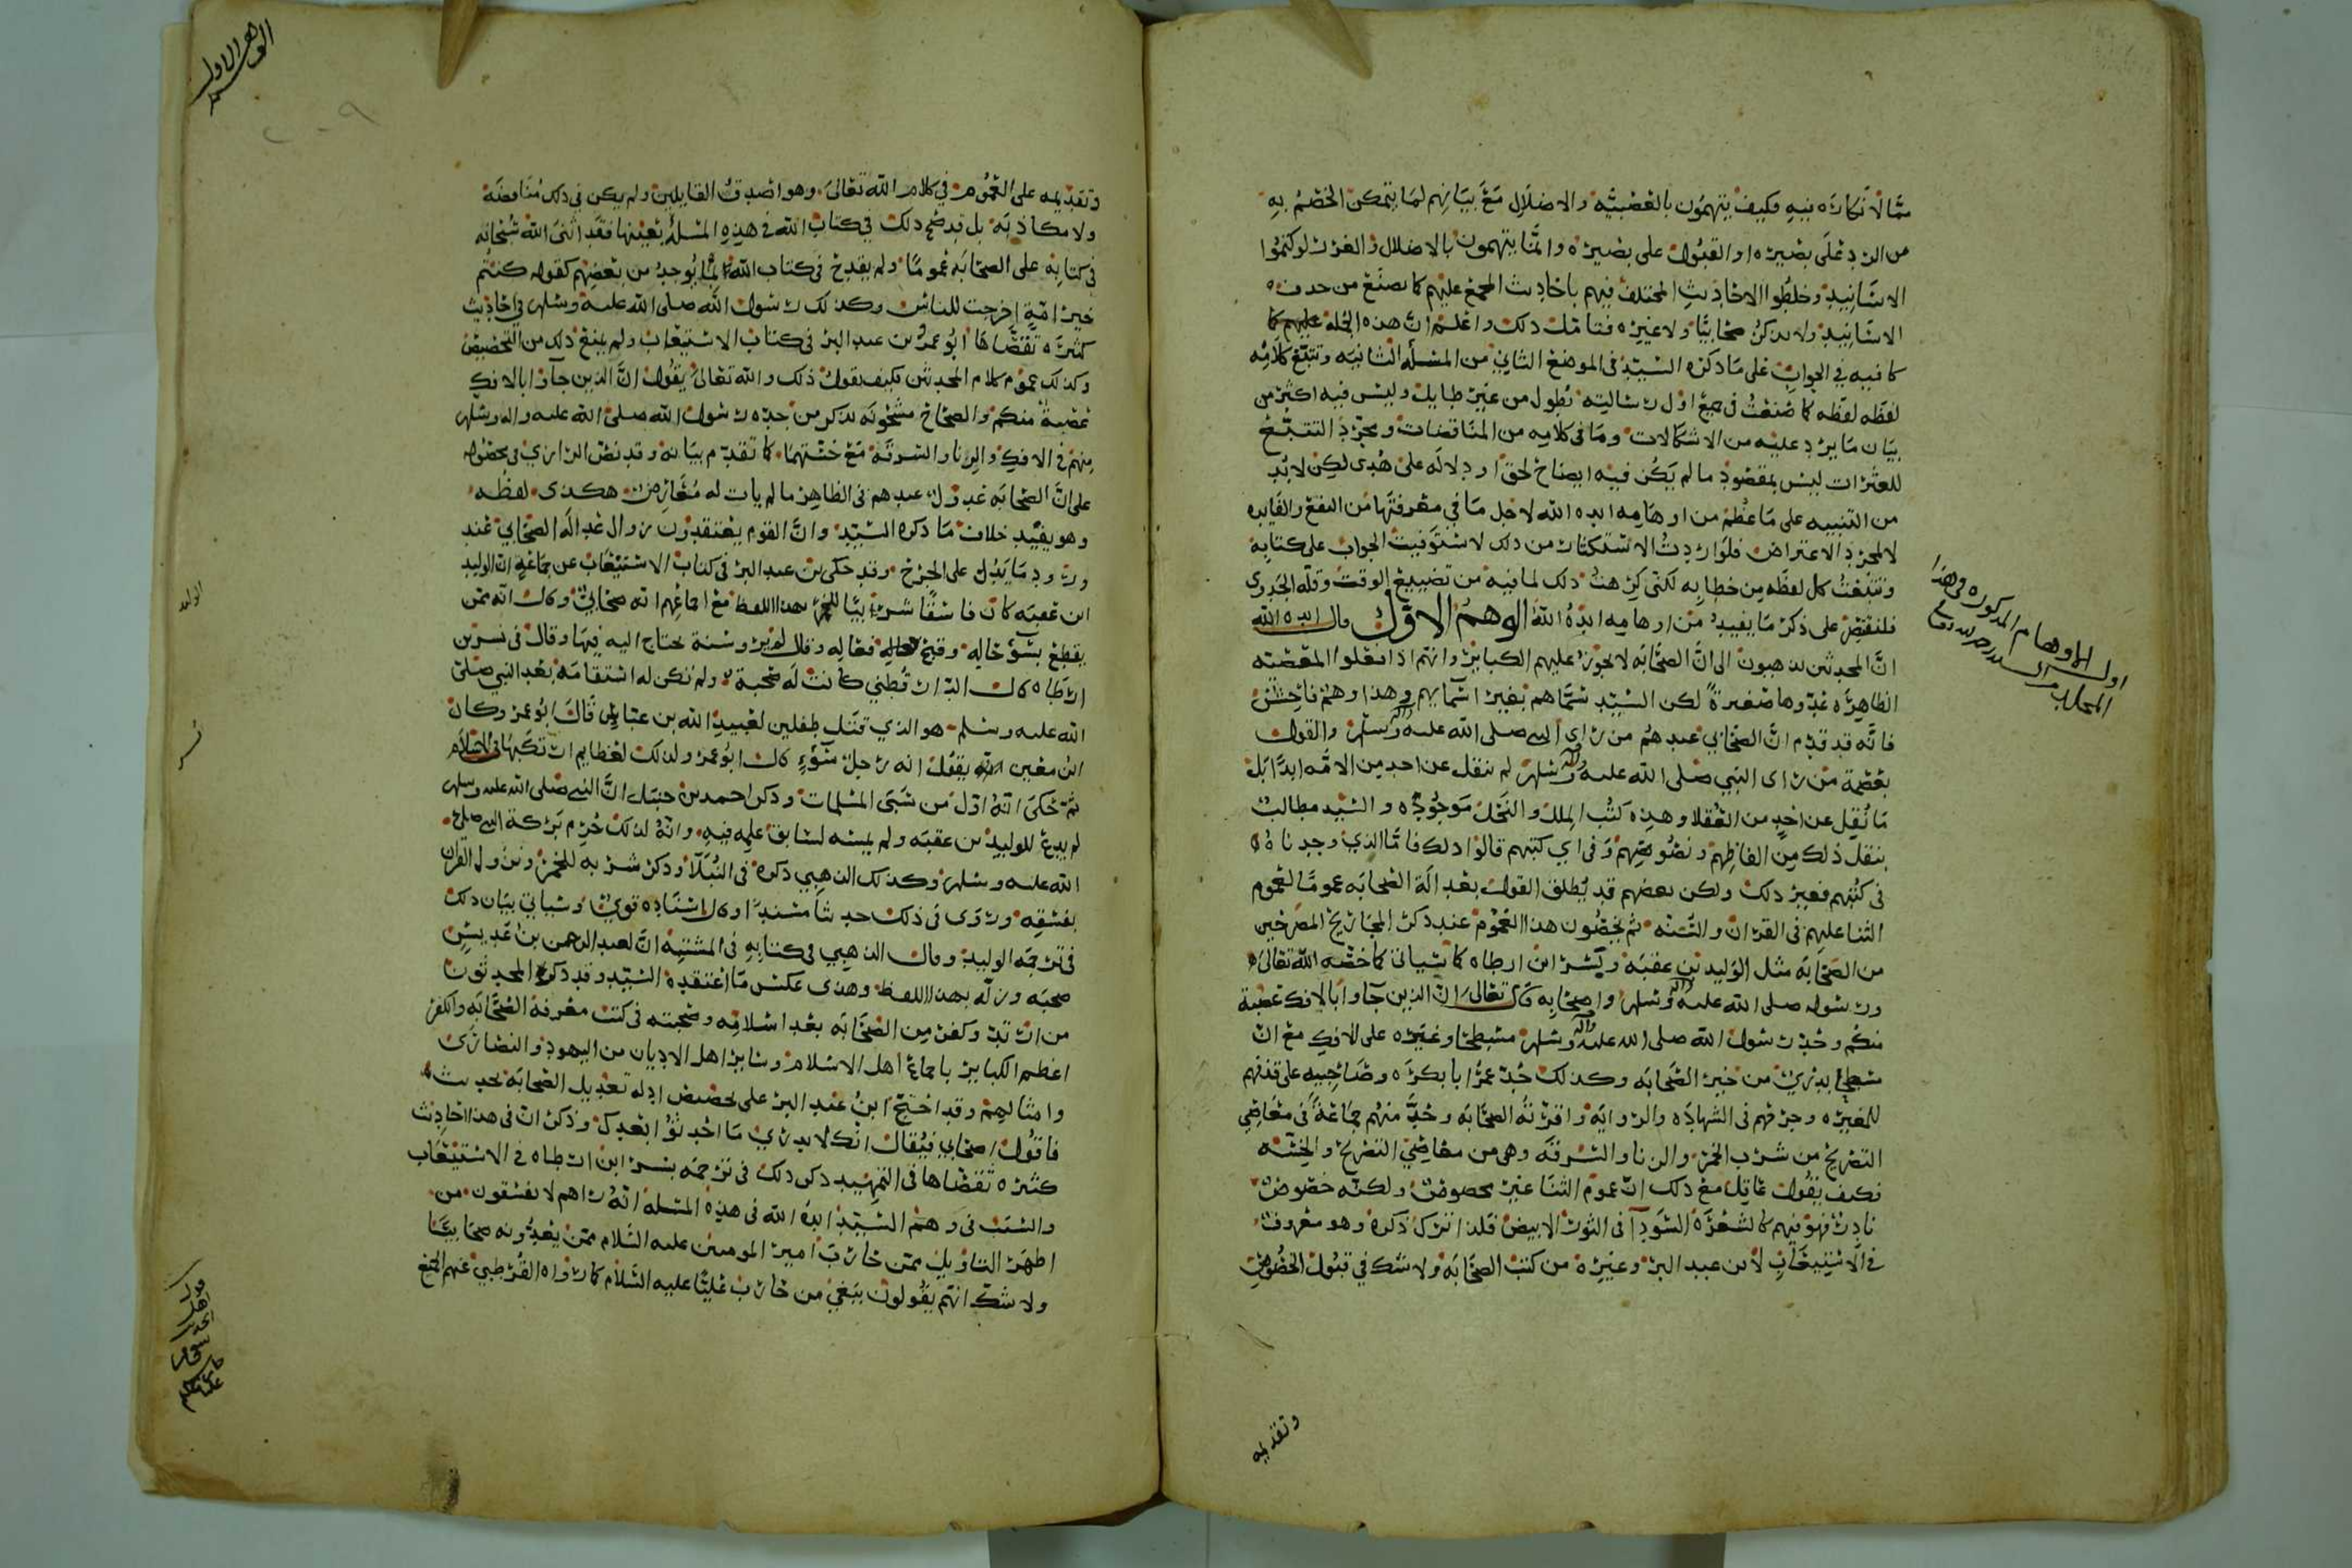 ممّا لا نكارة فيه فكيف يتهمون بالعصبيّه والاضلال مع بيانهم لما يتمكن الخصم به
من الرد على بصيره او القبول على بصيره وانّما يتهمون بالاضلال والغرر لو كتموا
الاسانيد وخلطوا الاحاديث المختلف فيهم باحاديث المجمع عليهم كما يصنع من حذف
الاسانيد ولا يذكر صحابيّا ولا غيره فتامل ذلك واعلم ان هذه الجمله
كافيه في الجواب على ما ذكره السيّد في الموضع الثاني من المسأله الثانيه وتتبّع كلامه
لفظه لفظه كما صنعت في جميع اوّل رسالته تطول من غير طايل وليس فيه اكثر من
بيان ما يرد عليه من الاشكالات وما في كلامه من المناقضات ومجرّد التتبّع
للعثرات ليس بمقصود ما لم يكن فيه ايضاح لحق او دلاله على هدى لكن لا بد
من التنبيه على ما عظم من اوهامه ايده الله لاجل ما في معرفتها من النفع والفايده
لا لمجرد الاعتراض فلو اردت الاستكثار من ذلك لاستوفيت الجواب على كتابه
وتتبعت كل لفظه من خطابه لكني كرهت ذلك لما فيه من تضييع الوقت وقلّه الجدوى
فلنقتصر على ذكر ما يفيد من اوهامه ايده الله الوهم الاوّل قال ايده الله
انّ المحدثين يذهبون الى انّ الصحابه لا يجوز عليهم الكبائر وانهم اذا فعلوا المعصيه
الظاهره عدّوها صغيرة لكن السيّد سمّاهم بغير اسمايهم وهذا وهم فاحش
فانّه قد قدّم انّ الصحابي عندهم من راى النبي صلى الله عليه واله وسلم والقول
بعصمة من راى النبي صلى الله عليه واله وسلم لم ينقل عن احد من الامّه ابدًا بل
ما نُقِل عن احدٍ من العقلا وهذه كتب الملل والنحل موجوده والسّيد مطالب
بنقل ذلك من الفاظهم ونصوصهم وفي اي كتبهم قالوا ذلك فامّا الذي وجدناه
في كتبهم فغير ذلك ولكن بعضهم قد يُطلق القول بعدالة الصحابه عمومًا لعموم
الثنا عليهم في القران والسّنه ثم يخصّون هذا العموم عند ذكر المجاريح المصرّحين
من الصحابه مثل الوليد بن عقبه وبسر ابن ارطاه كما سياتي كما خصّه الله تعالى
ورسوله صلى الله عليه واله وسلم واصحابه قال تعالى انّ الذين جاوا بالافك عصبة
منكم وحدّ رسول الله صلى الله عليه واله وسلم مسطحًا وغيره على الافك مع انّ
مسطح بدري من خير الصحابه وكذلك حدّ عمر ابا بكره وصاحبيه على قذفهم
للمغيره وجرحهم في الشهاده والروايه واقرته الصحابه وحدّ منهم جماعة في معاصي
التصريح من شرب الخمر والزنا والسرقه وهي من معاصي التصريح والخسّه
فكيف يقول عاقل مع ذلك انّ عموم الثنا غير مخصوص ولكنّه خصوص
نادر فهو فيهم كالشعره السودا في الثور الابيض فلذا نترك ذكره وهو معروف
في الاستيعاب لابن عبد البر وغيره من كتب الصحابه ولا شك في قبول الخصوص
وتقديمه
اول الاوهام المذكوره وهذا
وتقديمه على العموم في كلام الله تعالى وهو اصدق القايلين ولم يكن في ذلك مناقضه
ولا مكاذبه بل قد صح ذلك في كتاب الله في هذه المسله بعينها فقد اثنى الله سبحانه
في كتابه على الصحابه عمومًا ولم يقدح في كتاب الله ما يوجد من بعضهم كقوله كنتم
خير امّةٍ اخرجت للناس وكذلك رسول الله صلى الله عليه وسلم في احاديث
كثيره تقصّاها ابو عمر بن عبد البر في كتاب الاستيعاب ولم يمنع ذلك من التخصيص
وكذلك عموم كلام المحدثين فكيف يقول ذلك والله تعالى يقول انّ الذين جآوا بالافك
عصبة منكم والصحاح مشحونه بذكر من حده رسول الله صلى الله عليه واله وسلم
منهم في الافك والزنا والسرقه مع خسّتهما كما تقدّم بيانه وقد نصّ الرازي في محصوله
على انّ الصحابه عدول عندهم في الظاهر ما لم يات له مُعَارض هكذى لفظه
وهو يفيد خلاف ما ذكره السيّد وانّ القوم يعتقدون زوال عدالة الصحابي عند
ورود ما يدل على الجرح وقد حكى بن عبد البر في كتاب الاستيعاب عن جماعةٍ ان الوليد
ابن عقبه كان فاسقًا شريبًا للخمر بهذا اللفظ مع اجماعهم انه صحابيّ وقال انه ممن
يقطع بسوء حاله وقبح فعاله وقال لم يرو سنة يحتاج اليه فيها وقال في بسر بن
ارطاه قال الدار قطني كانت له صحبة ولم تكن له استقامه بعد النبي صلى
الله عليه وسلم هو الذي قتل طفلين لعبيد الله بن عباس قال ابو عمر وكان
ابن معين يقول انه رجل سوء قال ابو عمر وذلك لعظايم ارتكبها في الاسلام
ثم حكى انه اوّل من سبى المسلمات وذكر احمد بن حنبل انّ النبي صلى الله عليه وسلم
لم يدع للوليد بن عقبه ولم يمسه لسابق علمه فيه وانّه لذلك حُرِم بركة النبي صلى
الله عليه وسلم وكذلك الذهبي ذكره في النُبَلا وذكر شربه للخمر ونزول القران
بفسقه وروى في ذلك حديثًا مسندًا وقال اسناده قوي وسياتي بيان ذلك
في ترجمه الوليد وقال الذهبي في كتابه في المشتبه انّ لعبد الرحمن بن عديس
صحبه وزلّه بهذا اللفظ وهذى عكس ما اعتقده السيّد وقد ذكر المحدثون
من ارتدّ وكفر من الصحابه بعد اسلامه وصحبته في كتب معرفة الصحابه والكفر
اعظم الكبائر باجماع اهل الاسلام وساير اهل الاديان من اليهود والنصارى
وامثالهم وقد احتجّ ابن عبد البر على تخصيص ادله تعديل الصحابه بحديث
فاقول اصحابي فيُقال انّك لا تدري ما احدثوا بعدك وذكر ان في هذا احاديث
كثيره تقصّاها في التمهيد ذكر ذلك في ترجمه بسر ابن ارطاه في الاستيعاب
والسّبب في وهم السّيّد ايده الله في هذه المسله انه راهم لا يفسّقون من
اظهر التاويل ممّن حارب امير المومنين عليه السّلام ممّن يعدّونه صحابيًّا
ولا شكّ انهم يقولون ببغي من حارب عليًّا عليه السّلام كما رواه القرطبي عنهم
الوهم الاول
الوليد
بسر